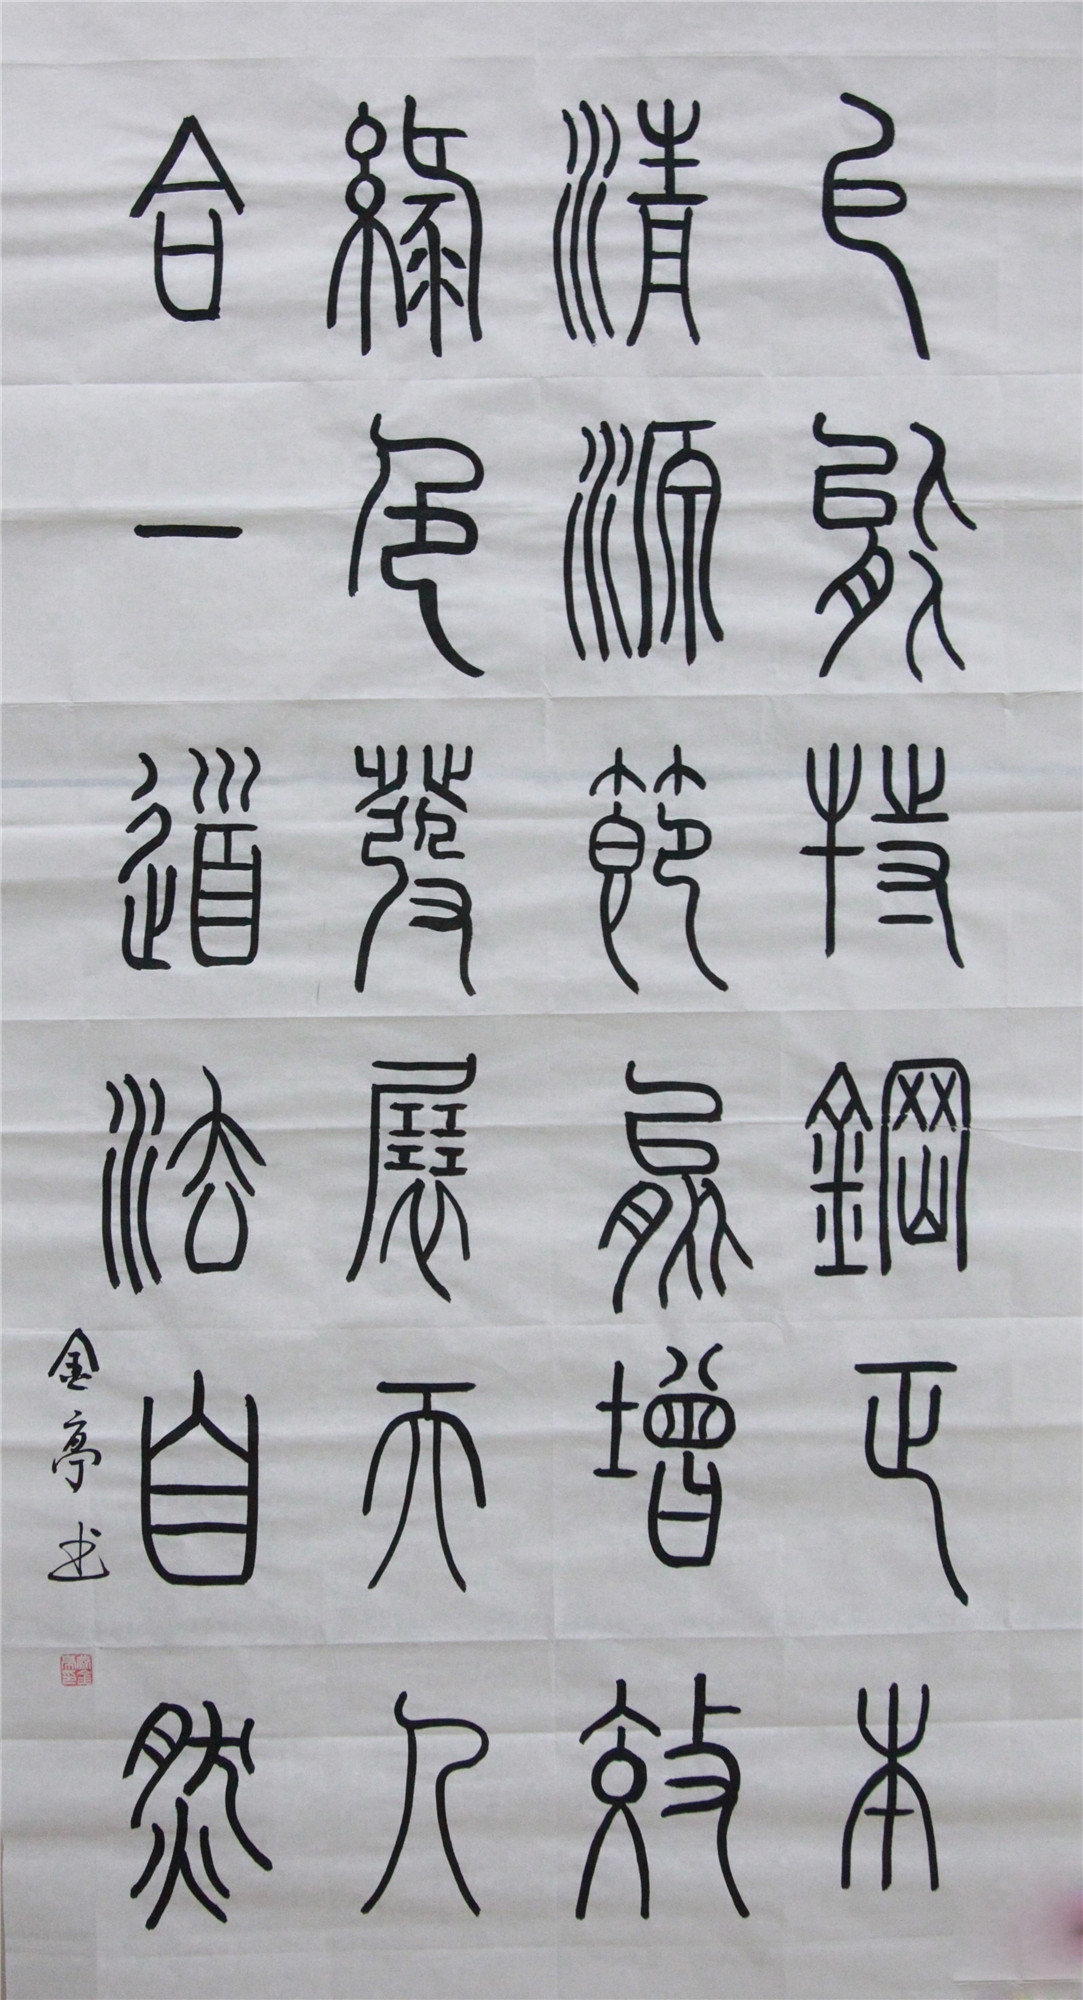 以能持鋼正本
清源節能增效
綠色發展天人
合一道法自然
金亭书